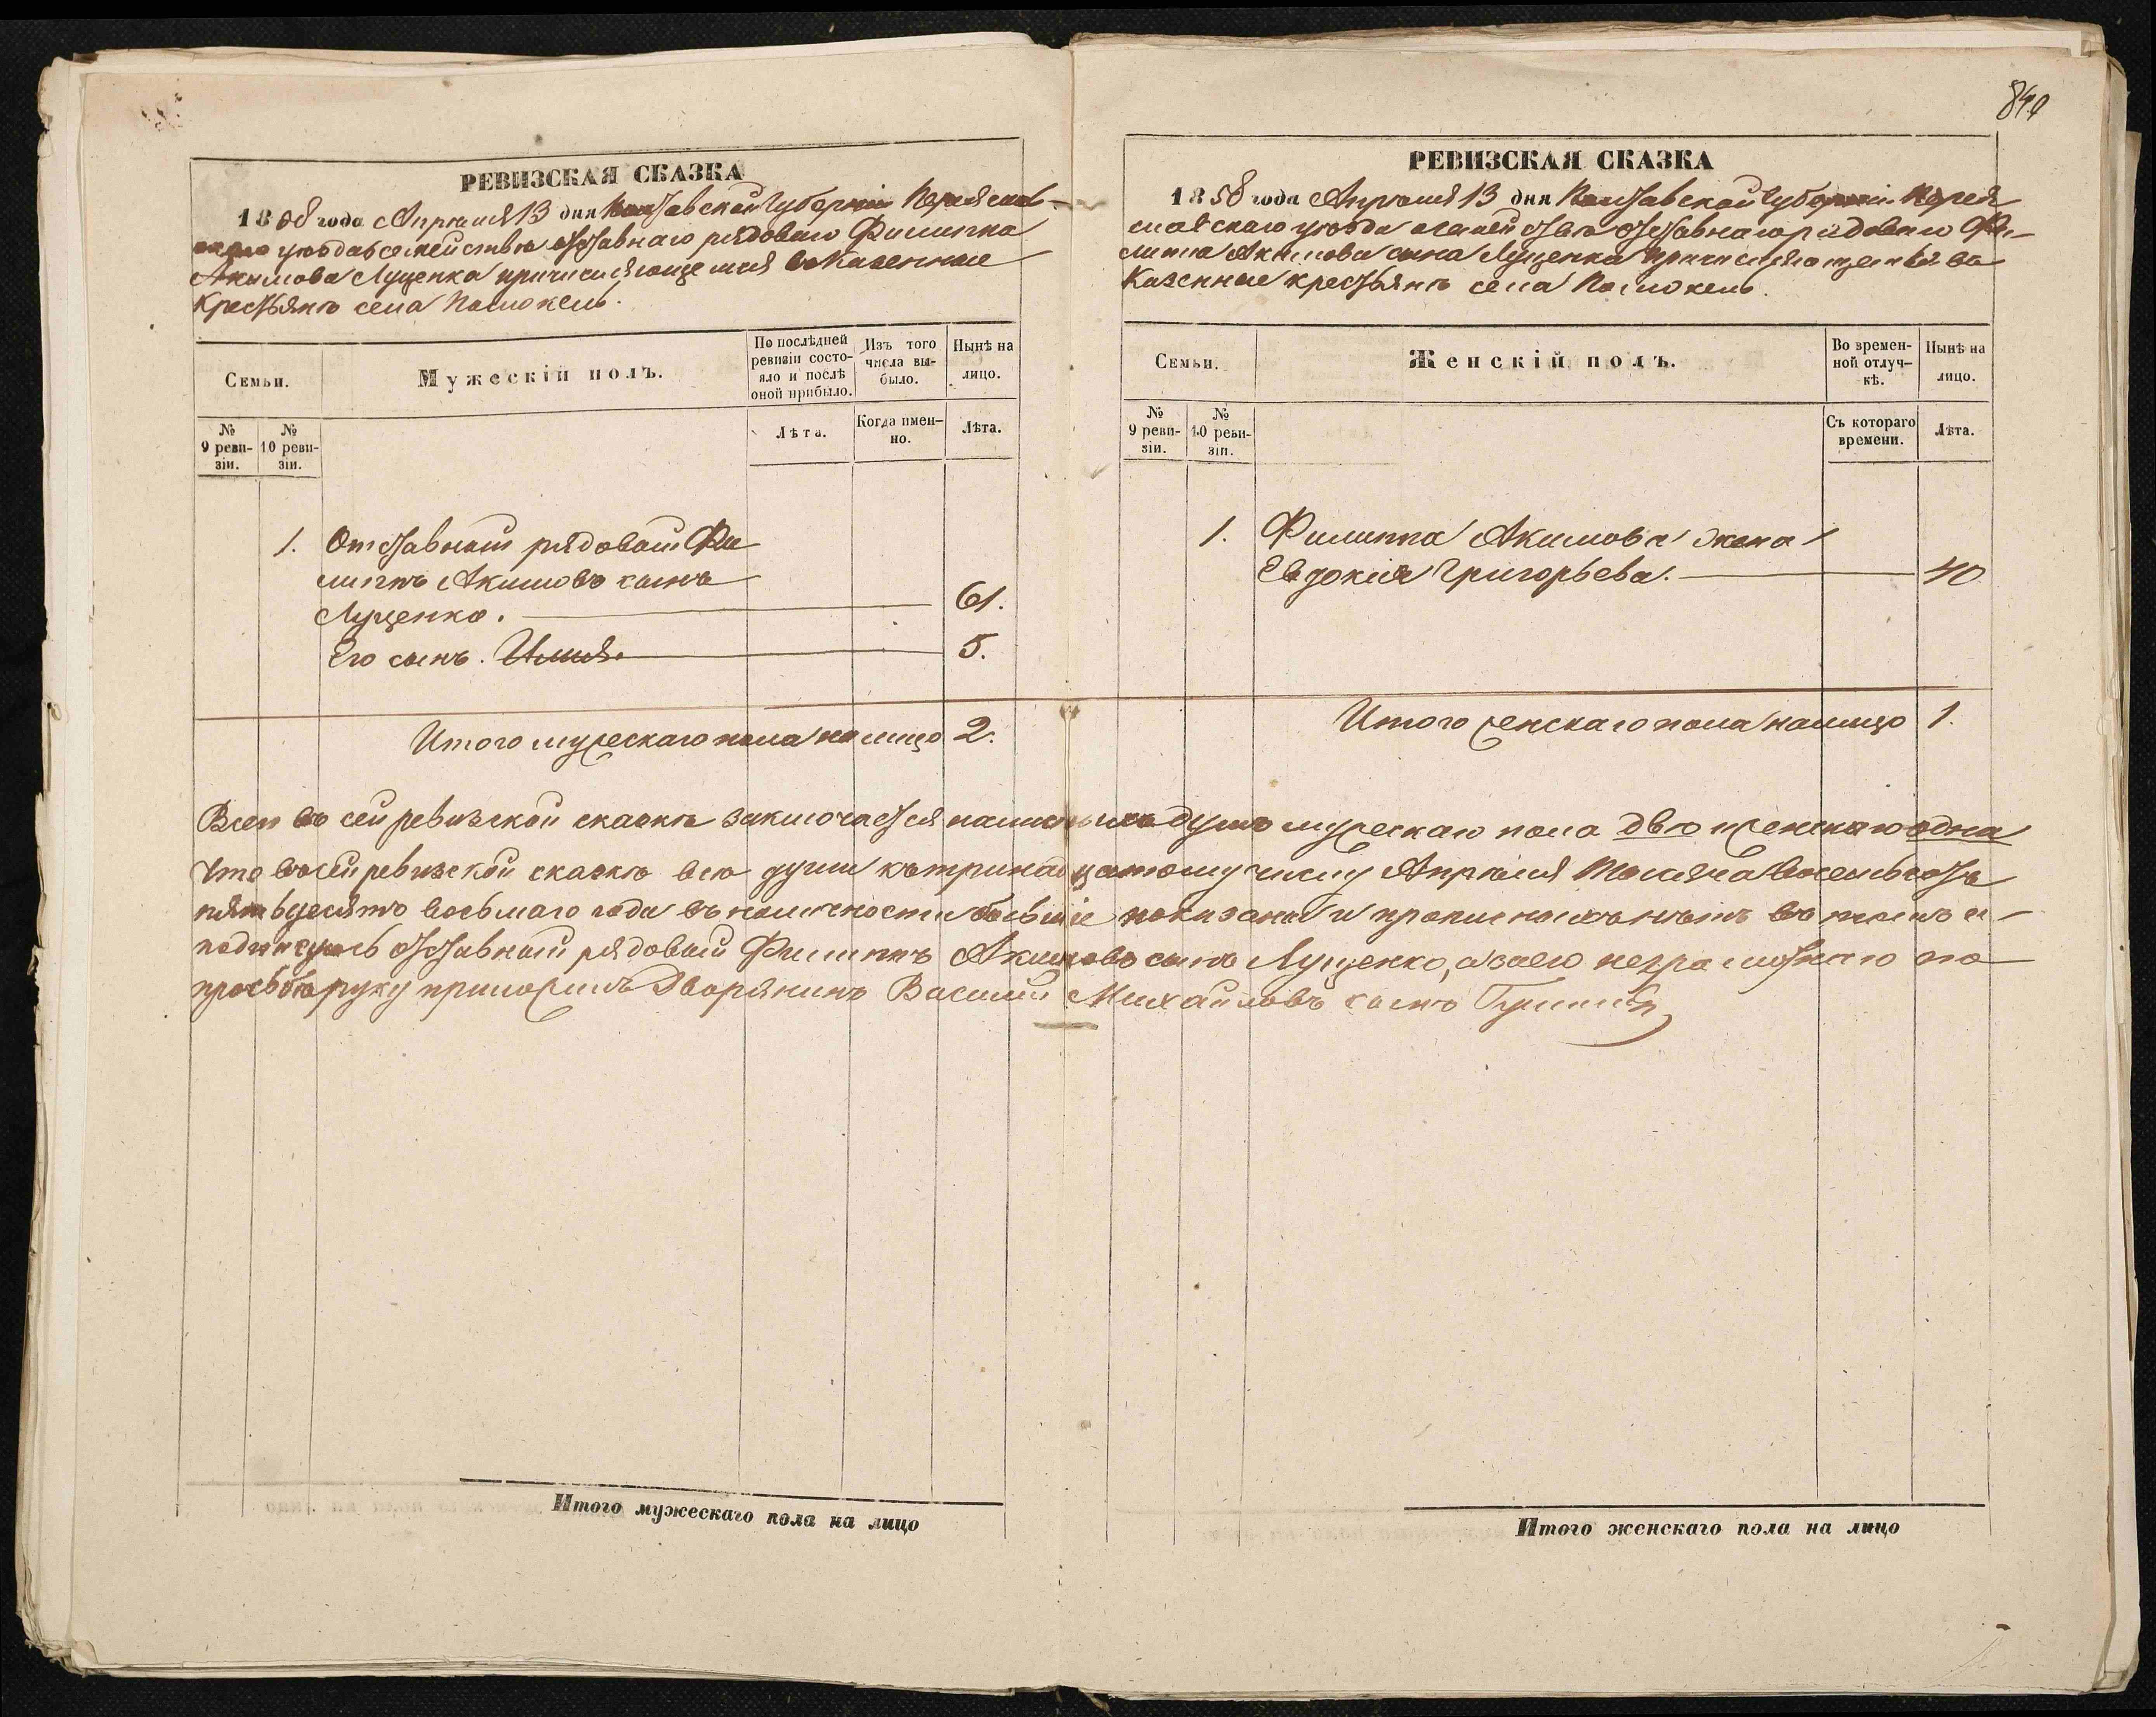 840
РЕВИЗСКАЯ СКАЗКА
1858 года Апреля 13 дня Полтавской Губернии Переяслав-
скаго уѣзда о семействѣ отставнаго рядоваго Филиппа
Акимова Луценка причисляющемся въ Казенные
Крестьянъ села Помоклей.
Семьи.
Мужескій полъ.
По послѣдней ревизіи состо-яло и послѣ оной прибыло.
Изъ того числа вы-было.
Нынѣ на лицо.
№ 9 реви-зіи.
№ 10 реви-зіи.
Лѣта.
Когда имен-но.
Лѣта.
1. Отставной рядовой Фи
липпъ Акимовъ сынъ
Луценко. 61.
Его сынъ. Илия. 5.
Итого мужескаго пола на лицо 2.
РЕВИЗСКАЯ СКАЗКА
1858 года Апреля 13 дня Полтавской Губернии Перея
славскаго уѣзда о семействѣ отставнаго рядоваго Фи-
липпа Акимова сына Луценка причисляющемся въ
Казенные крестьянъ села Помоклей.
Семьи.
Женскій полъ.
Во времен-ной отлуч-кѣ.
Нынѣ на лицо.
№ 9 реви-зіи.
№ 10 реви-зіи.
Съ котораго времени.
Лѣта.
1. Филиппа Акимова жена
Евдокія Григорьева. 40
Итого женскаго пола налицо 1.
Всего въ сей ревизской сказкѣ заключается наличныхъ душъ мужескаго пола двѣ женскаго одна
Что въ сей ревизской сказкѣ всѣ души къ тринадцатому числу Апрѣля Тысяча Восемьсотъ
пятьдесятъ восьмаго года въ наличности бывшіе показаны и прописныхъ нѣтъ въ томъ и
подписуюсь отставной рядовой Филиппъ Акимовъ сынъ Луценко, а за его неграмотнаго по
просьбѣ руку приложилъ Дворянинъ Василий Михайловъ сынъ
Итого мужескаго пола на лицо
Итого женскаго пола на лицо